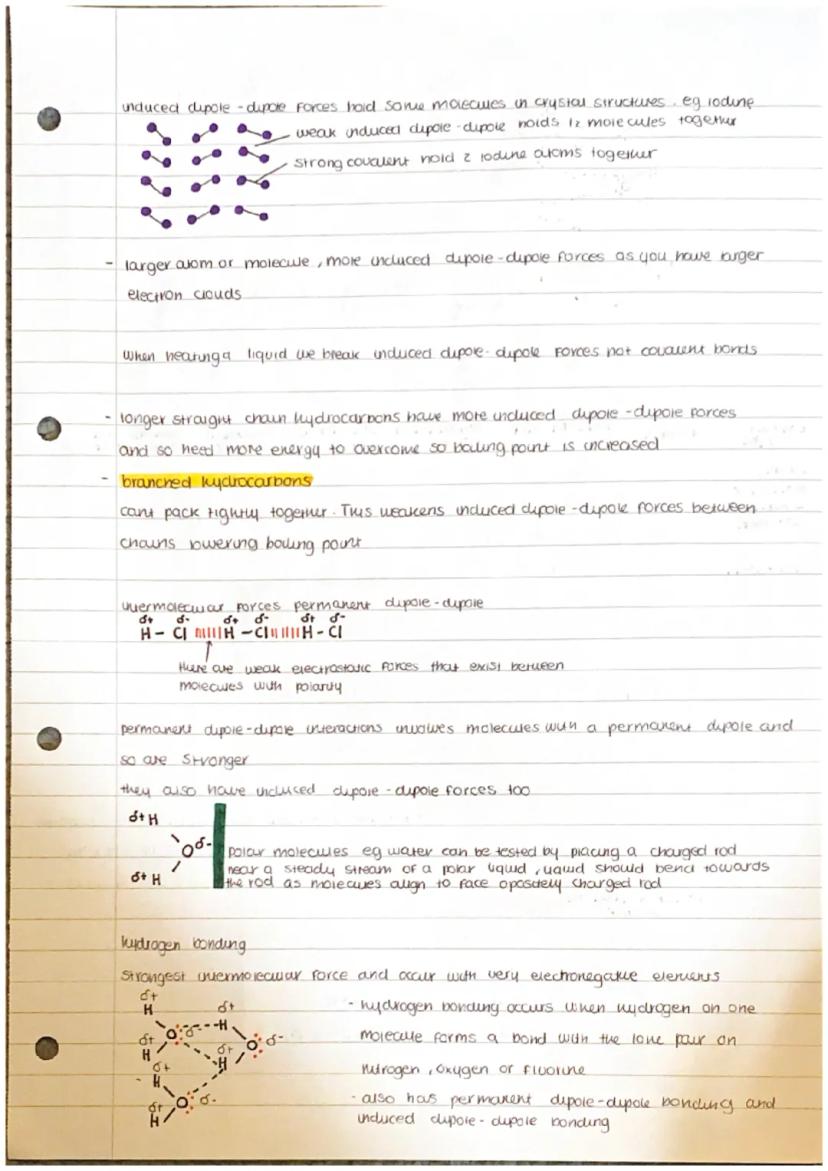 induced dipole-dipole forces hold some molecules in crystal structures. eg iodine
weak induced dipole-dipole holds I2 molecules together
strong covalent hold 2 iodine atoms together
- larger atom or molecule, more induced dipole-dipole forces as you have larger
electron clouds
when heating a liquid we break induced dipole-dipole forces not covalent bonds
- longer straight chain hydrocarbons have more induced dipole-dipole forces
and so need more energy to overcome so boiling point is increased
- branched hydrocarbons
cant pack tightly together. This weakens induced dipole-dipole forces between
chains lowering boiling point
intermolecular forces permanent dipole-dipole
δ+ δ- δ+ δ- δ+ δ-
H - Cl H - Cl H - Cl
there are weak electrostatic forces that exist between
molecules with polarity
permanent dipole-dipole interactions involves molecules with a permanent dipole and
so are stronger
they also have induced dipole-dipole forces too
δ+ H
O δ-
δ+ H
polar molecules eg water can be tested by placing a charged rod
near a steady stream of a polar liquid, liquid should bend towards
the rod as molecules align to face oposdely charged rod
hydrogen bonding
strongest intermolecular force and occur with very electronegative elements
δ+
H δ+
O δ- H
δ+ O δ-
H δ+
δ+ H
H
O δ-
δ+
H
- hydrogen bonding occurs when hydrogen on one
molecule forms a bond with the lone pair on
nitrogen, oxygen or fluorine
- also has permanent dipole-dipole bonding and
induced dipole-dipole bonding